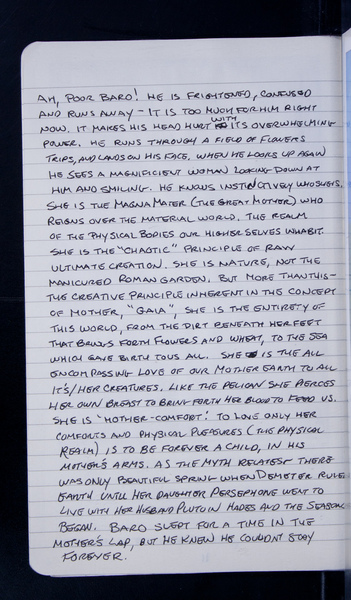 AH, POOR BARD! HE IS FRIGHTENED, CONFUSED
AND RUNS AWAY - IT IS TOO MUCH FOR HIM RIGHT
NOW. IT MAKES HIS HEAD HURT WITH ITS OVERWHELMING
POWER. HE RUNS THROUGH A FIELD OF FLOWERS
TRIPS, AND LANDS ON HIS FACE. WHEN HE LOOKS UP AGAIN
HE SEES A MAGNIFICIENT WOMAN LOOKING DOWN AT
HIM AND SMILING. HE KNOWS INSTINCTIVELY WHO SHE IS.
SHE IS THE MAGNA MATER (THE GREAT MOTHER) WHO
REIGNS OVER THE MATERIAL WORLD. THE REALM
OF THE PHYSICAL BODIES OUR HIGHER SELVES INHABIT.
SHE IS THE "CHAOTIC" PRINCIPLE OF RAW
ULTIMATE CREATION. SHE IS NATURE, NOT THE
MANICURED ROMAN GARDEN. BUT MORE THAN THIS -
THE CREATIVE PRINCIPLE INHERENT IN THE CONCEPT
OF MOTHER, "GAIA", SHE IS THE ENTIRETY OF
THIS WORLD, FROM THE DIRT BENEATH HER FEET
THAT BRINGS FORTH FLOWERS AND WHEAT, TO THE SEA
WHICH GAVE BIRTH TO US ALL. SHE IS THE ALL
ENCOMPASSING LOVE OF OUR MOTHER EARTH TO ALL
IT'S/HER CREATURES. LIKE THE PELICAN SHE PIERCES
HER OWN BREAST TO BRING FORTH HER BLOOD TO FEED US.
SHE IS "MOTHER-COMFORT". TO LOVE ONLY HER
COMFORTS AND PHYSICAL PLEASURES (THE PHYSICAL
REALM) IS TO BE FOREVER A CHILD, IN HIS
MOTHER'S ARMS. AS THE MYTH RELATES THERE
WAS ONLY BEAUTIFUL SPRING WHEN DEMETER RULED
EARTH UNTIL HER DAUGHTER PERSEPHONE WENT TO
LIVE WITH HER HUSBAND PLUTO IN HADES AND THE SEASONS
BEGAN. BARD SLEPT FOR A TIME IN THE
MOTHER'S LAP, BUT HE KNEW HE COULDN'T STAY
FOREVER.